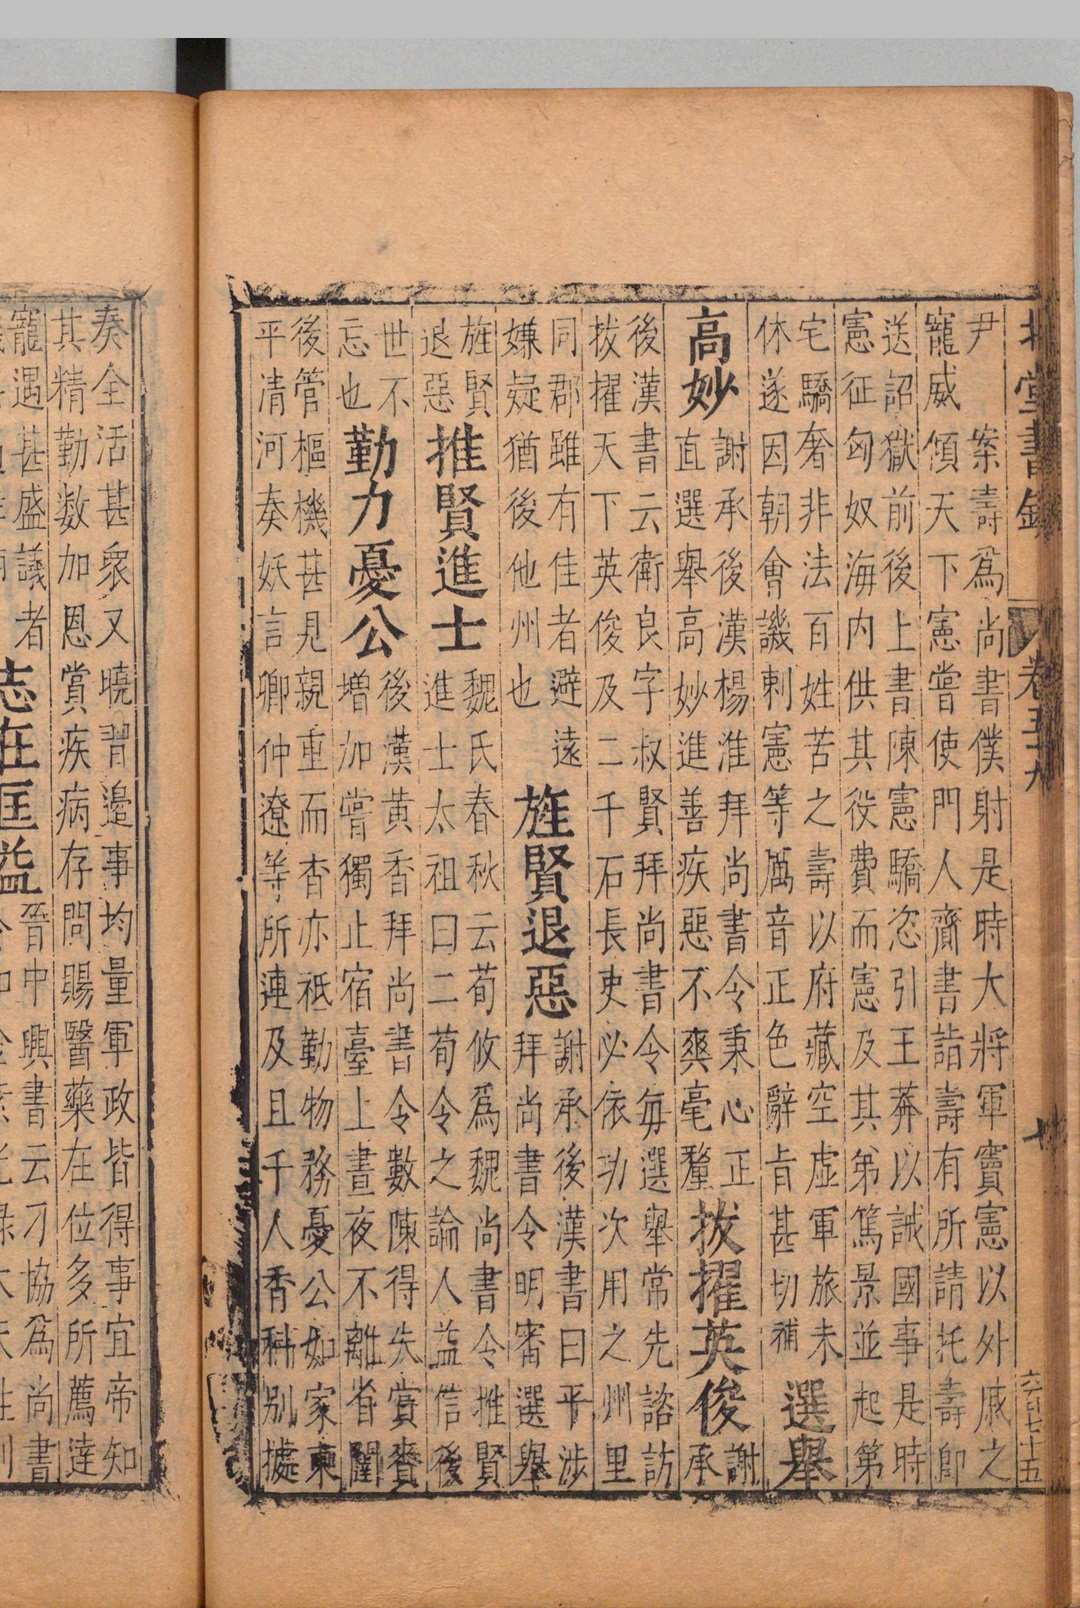 北堂書鈔 卷五十九 七 六百七十五
尹 案壽為尚書僕射是時大將軍竇憲以外戚之
寵威傾天下憲嘗使門人齎書詣壽有所請托壽即
送詔獄前後上書陳憲驕恣引王莽以誡國事是時
憲征匈奴海內供其役費而憲及其弟篤景並起第
宅驕奢非法百姓苦之壽以府藏空虛軍旅未
休遂因朝會譏刺憲等厲音正色辭旨甚切補
選舉
高妙
謝承後漢楊淮拜尚書令秉心正
直選舉高妙進善疾惡不爽毫釐
拔擢英俊
謝
承
後漢書云衛良字叔賢拜尚書令每選舉常先諮訪
拔擢天下英俊及二千石長吏必依功次用之州里
同郡雖有佳者避遠
嫌疑猶後他州也
旌賢退惡
謝承後漢書曰平涉
拜尚書令明審選舉
旌賢
退惡
推賢進士
魏氏春秋云荀攸為魏尚書令推賢
進士太祖曰二荀令之論人益信後
世不
忘也
勤力憂公
後漢黃香拜尚書令數陳得失賞賚
增加嘗獨止宿臺上晝夜不離省闥
後管樞機甚見親重而香亦祗勤物務憂公如家東
平清河奏妖言卿仲遼等所連及且千人香科別據
奏全活甚衆又曉習邊事均量軍政皆得事宜帝知
其精勤数加恩賞疾病存問賜醫藥在位多所薦達
寵遇甚盛議者
志在匡益
晉中興書云刁協為尚書